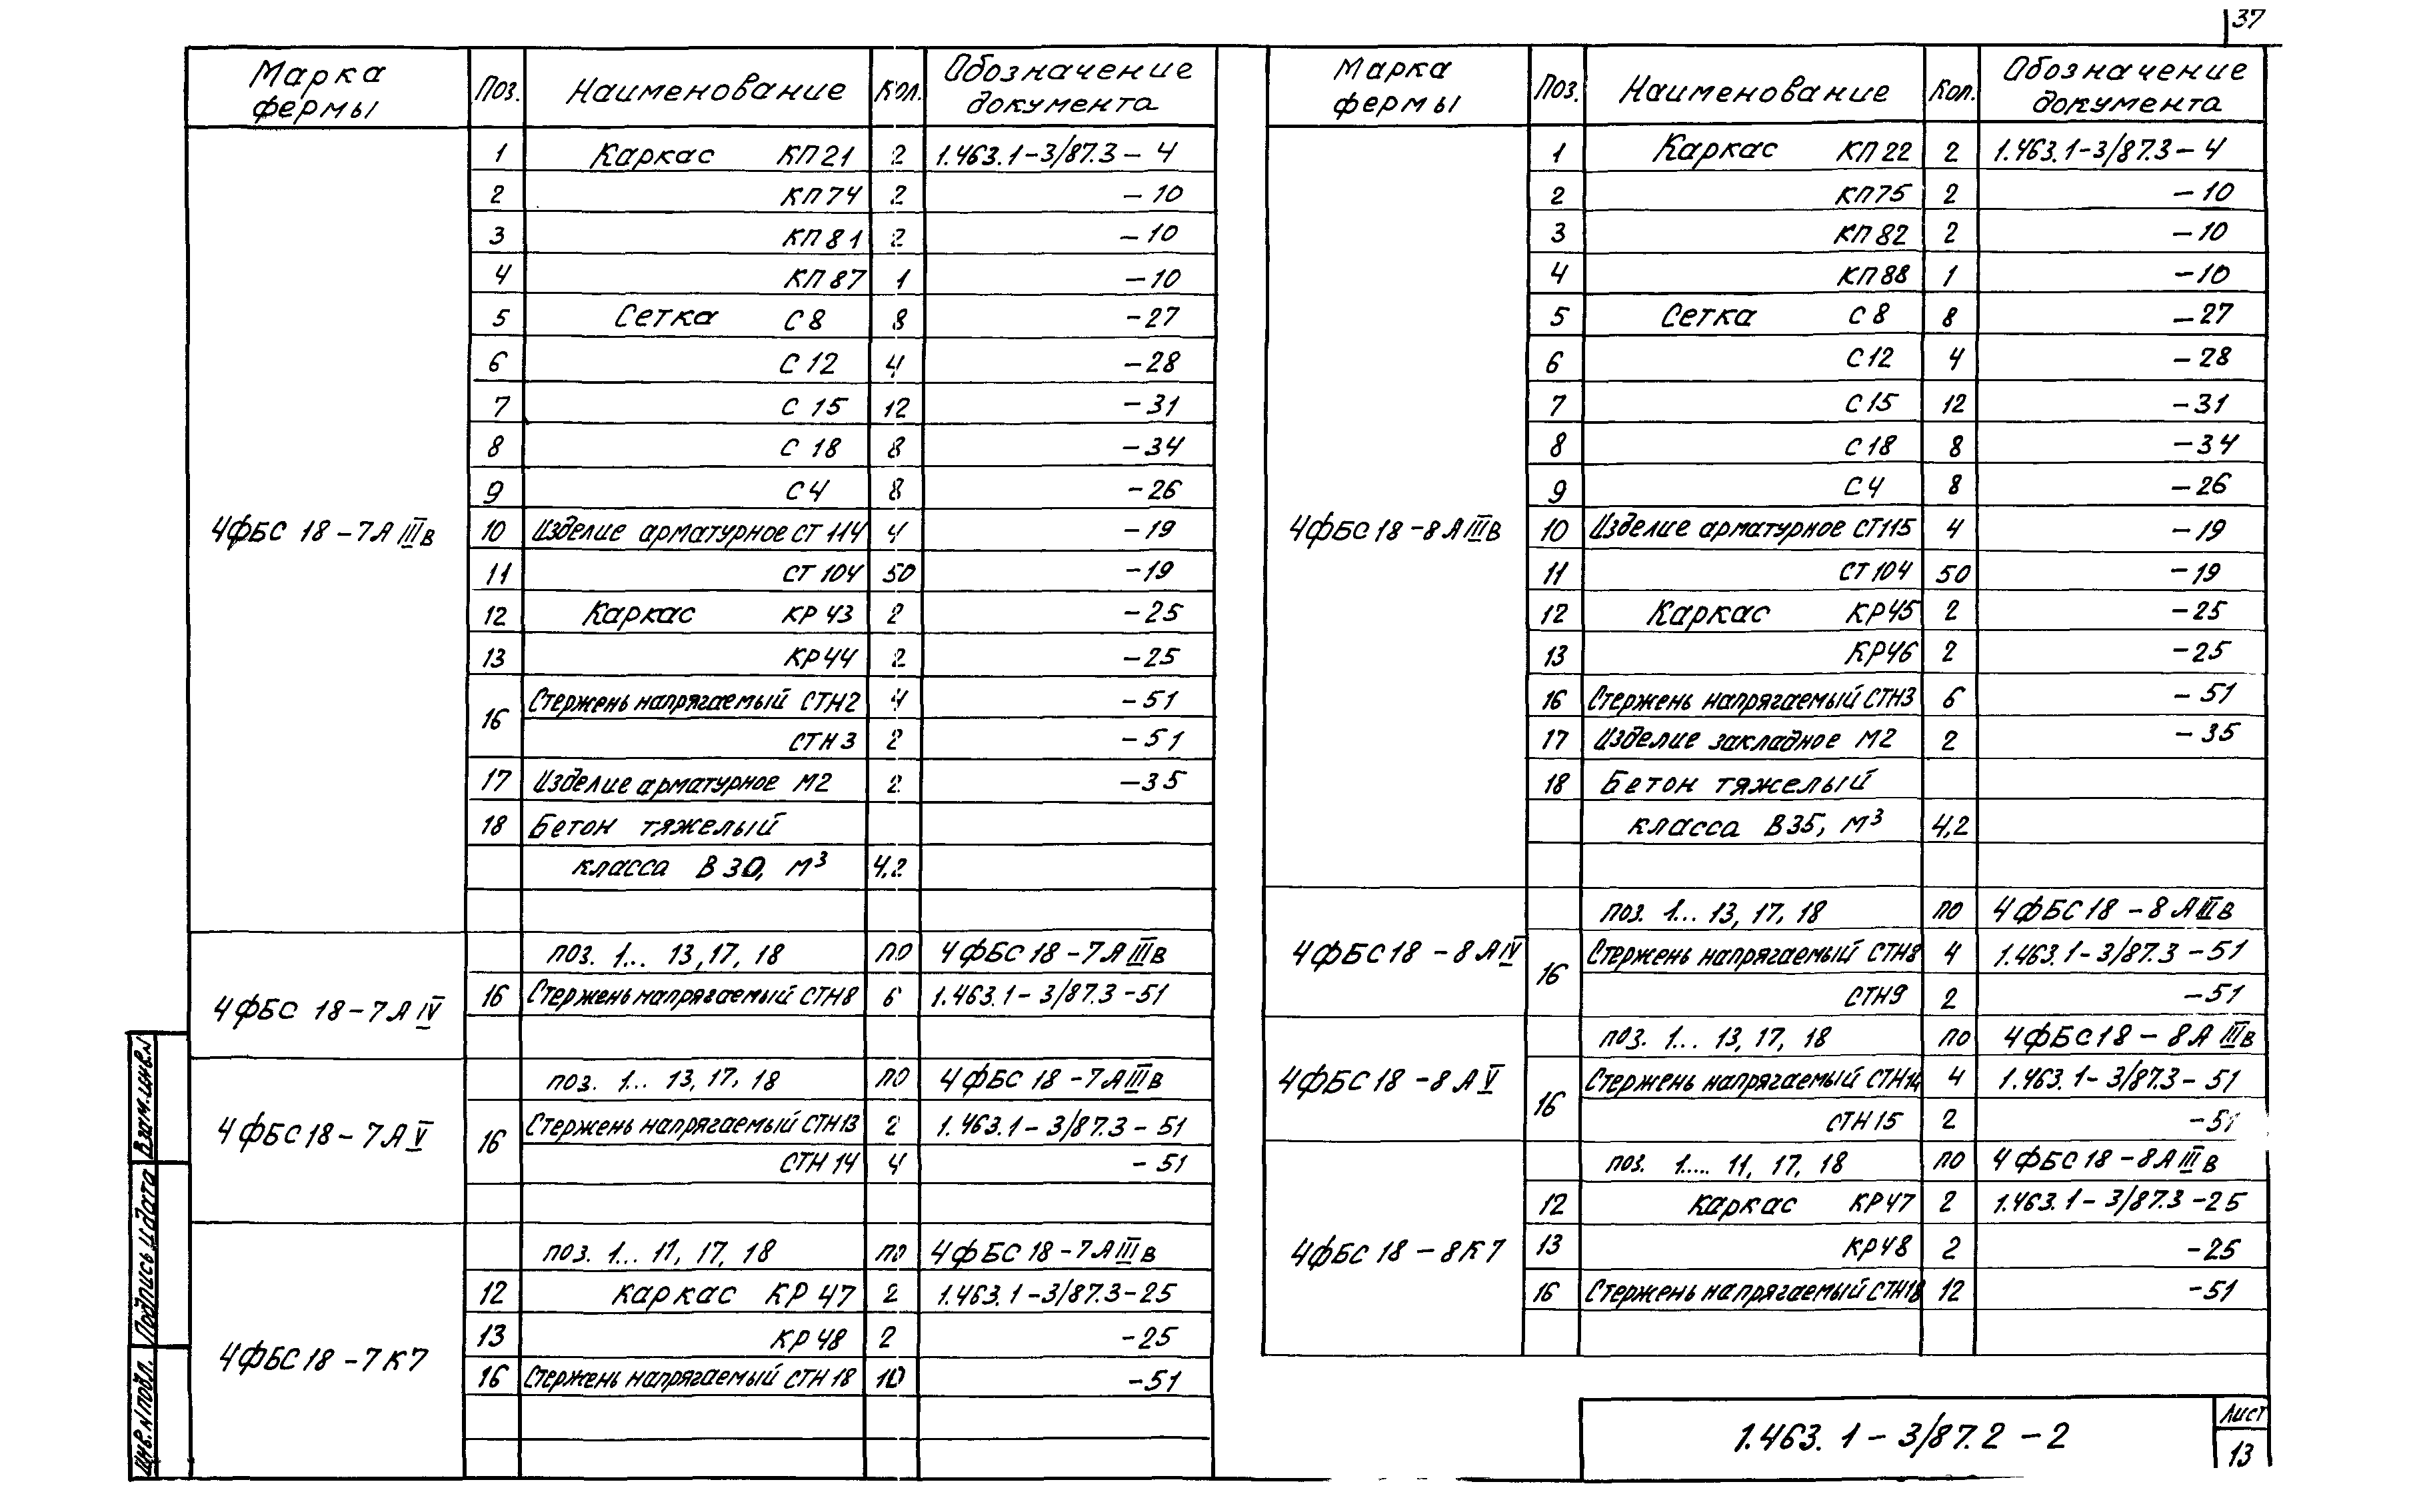 37
Марка фермы Поз. Наименование Кол. Обозначение документа
1 Каркас КП21 2 1.463.1-3/87.3-4
2 КП74 2 -10
3 КП81 2 -10
4 КП87 1 -10
5 Сетка С8 8 -27
6 С12 4 -28
7 С15 12 -31
8 С18 8 -34
9 С4 8 -26
4ФБС 18-7АIIIв 10 Изделие арматурное СТ114 4 -19
11 СТ104 50 -19
12 Каркас КР43 2 -25
13 КР44 2 -25
16 Стержень напрягаемый СТН2 4 -51
СТН3 2 -51
17 Изделие арматурное М2 2 -35
18 Бетон тяжелый
класса В30, м³ 4,2
поз. 1... 13, 17, 18 по 4ФБС 18-7АIIIв
4ФБС 18-7АIV 16 Стержень напрягаемый СТН8 6 1.463.1-3/87.3-51
поз. 1... 13, 17, 18 по 4ФБС 18-7АIIIв
4ФБС 18-7АV 16 Стержень напрягаемый СТН13 2 1.463.1-3/87.3-51
СТН14 4 -51
поз. 1... 11, 17, 18 по 4ФБС 18-7АIIIв
12 Каркас КР47 2 1.463.1-3/87.3-25
13 КР48 2 -25
4ФБС 18-7К7
16 Стержень напрягаемый СТН18 10 -51
Марка фермы Поз. Наименование Кол. Обозначение документа
1 Каркас КП22 2 1.463.1-3/87.3-4
2 КП75 2 -10
3 КП82 2 -10
4 КП88 1 -10
5 Сетка С8 8 -27
6 С12 4 -28
7 С15 12 -31
8 С18 8 -34
9 С4 8 -26
4ФБС 18-8АIIIв 10 Изделие арматурное СТ115 4 -19
11 СТ104 50 -19
12 Каркас КР45 2 -25
13 КР46 2 -25
16 Стержень напрягаемый СТН3 6 -51
17 Изделие закладное М2 2 -35
18 Бетон тяжелый
класса В35, м³ 4,2
поз. 1... 13, 17, 18 по 4ФБС 18-8АIIIв
4ФБС 18-8АIV 16 Стержень напрягаемый СТН8 4 1.463.1-3/87.3-51
СТН9 2 -51
поз. 1... 13, 17, 18 по 4ФБС 18-8АIIIв
4ФБС 18-8АV 16 Стержень напрягаемый СТН14 4 1.463.1-3/87.3-51
СТН15 2 -51
поз. 1..... 11, 17, 18 по 4ФБС 18-8АIIIв
12 Каркас КР47 2 1.463.1-3/87.3-25
4ФБС 18-8К7 13 КР48 2 -25
16 Стержень напрягаемый СТН18 12 -51
1.463.1-3/87.2-2
Лист
13
Взам.инв.N
Подпись и дата
Инв.N подл.